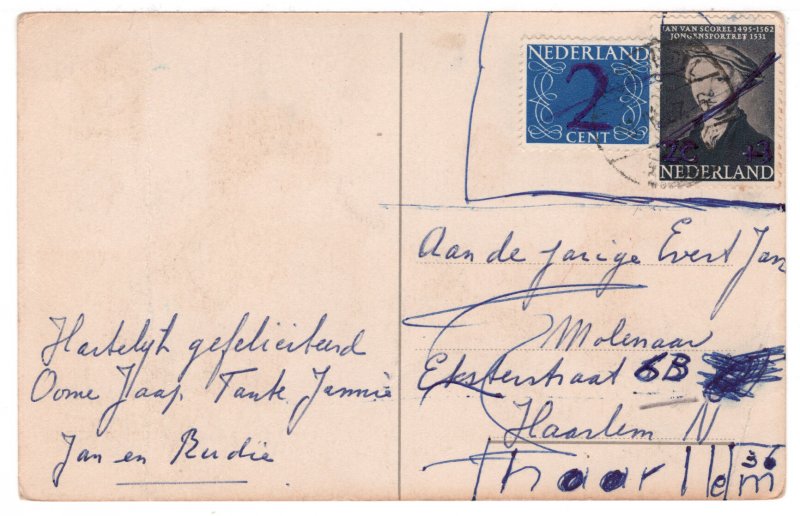 NEDERLAND
2
CENT
JAN VAN SCOREL 1495-1562
JONGENSPORTRET 1531
2c +3
NEDERLAND
Aan de jarige Evert Jan
Molenaar
Eksterstraat 6B
Haarlem N
haarlem
36
Hartelijk gefeliciteerd
Oome Jaap Tante Jannie
Jan en Rudie